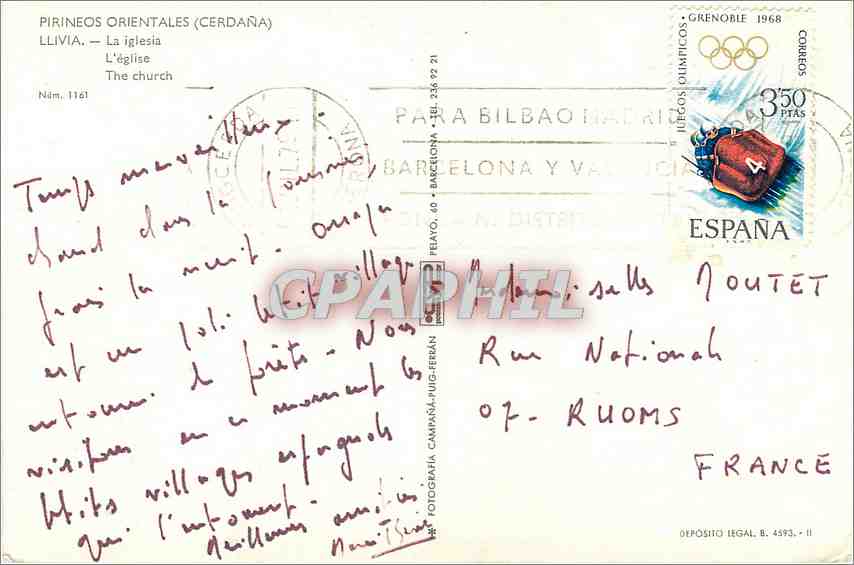 PIRINEOS ORIENTALES (CERDAÑA)
LLIVIA. — La iglesia
L'église
The church
Núm. 1161
Temps merveilleux.
chaud dans la journée,
frais la nuit.
est un joli petit village
entouré de forêts. Nous
visitons en ce moment les
petits villages espagnols
qui l'entourent.
Meilleures amitiés
FOTOGRAFIA CAMPAÑÁ-PUIG-FERRÁN
PELAYO, 60 • BARCELONA • TEL. 236 92 21
PARA BILBAO MADRID
BARCELONA Y VALENCIA
JUEGOS OLIMPICOS • GRENOBLE 1968
CORREOS
3'50
PTAS
4
ESPAÑA
Mademoiselle MOUTET
Rue Nationale
07- RUOMS
FRANCE
DEPÓSITO LEGAL, B. 4593. - II
CPAPHIL